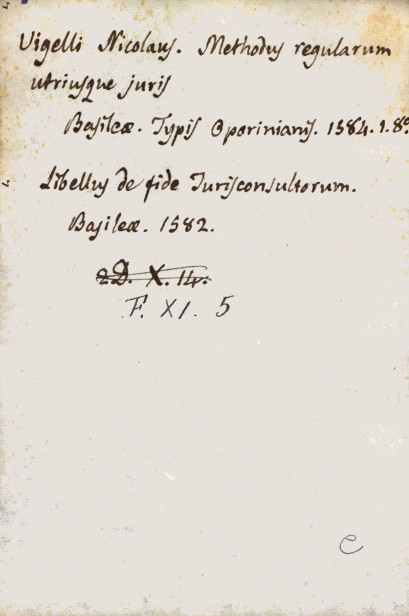 Vigelli Nicolaus. Methodus regularum
utriusque juris
Basileæ. Typis Oporinianis. 1584. 1. 8º
Libellus de fide Jurisconsultorum.
Basileæ. 1582.
2D. X. 14.
F. XI. 5
C